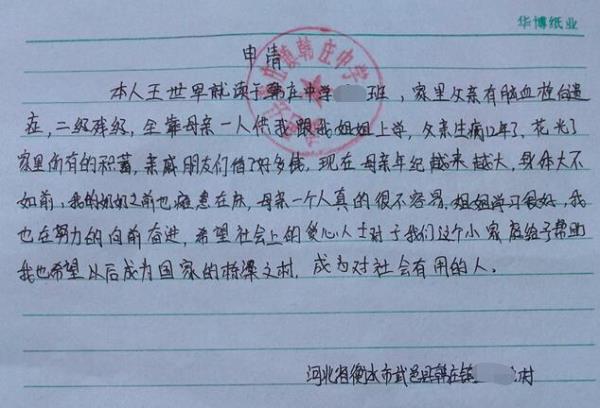 华博纸业
申请
镇韩庄中学
本人王世军就读于韩庄中学 班，家里父亲有脑血栓后遗
症，二级残经，全靠母亲一人供我跟我姐姐上学，父亲生病12年了，花光了
家里所有的积蓄，亲戚朋友们借了好多钱，现在母亲年纪越来越大，身体大不
如前，我的奶奶之前也瘫患在床，母亲一个人真的很不容易，姐姐学习很好，我
也在努力的向前奋进，希望社会上的爱心人士对于我们这个小家庭给予帮助
我也希望以后成为国家的栋梁之材，成为对社会有用的人。
河北省衡水市武邑县韩庄镇 村